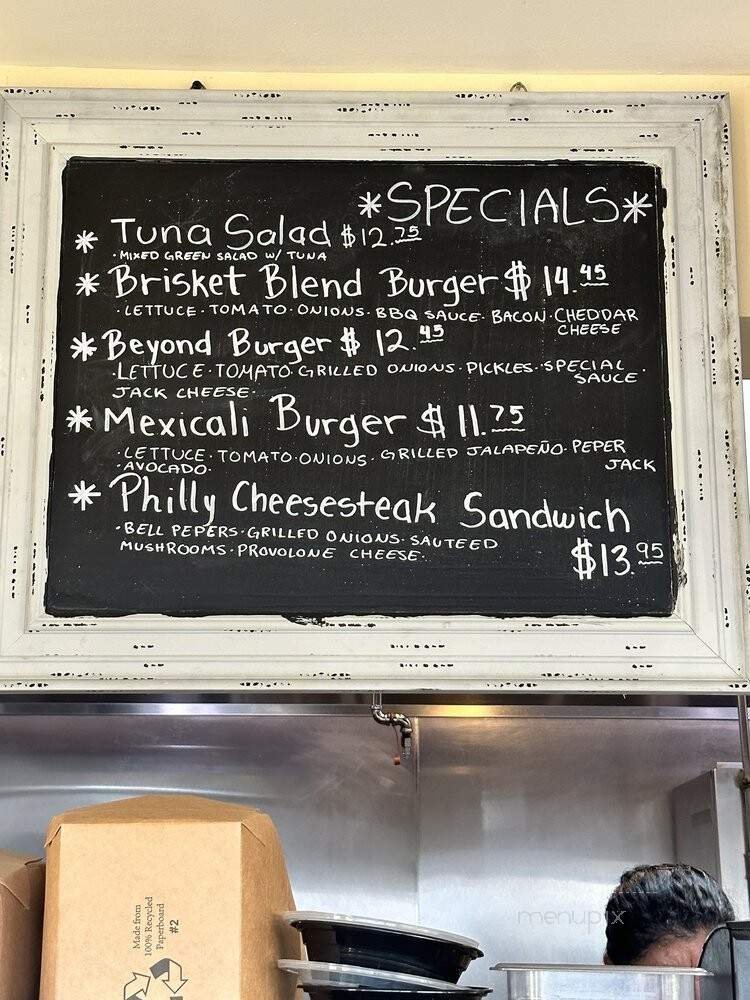 *SPECIALS*
* Tuna Salad $12.75
·MIXED GREEN SALAD W/ TUNA
* Brisket Blend Burger $14.45
·LETTUCE·TOMATO·ONIONS·BBQ SAUCE·BACON·CHEDDAR
CHEESE
* Beyond Burger $12.45
·LETTUCE·TOMATO·GRILLED ONIONS·PICKLES·SPECIAL
SAUCE·
JACK CHEESE·
* Mexicali Burger $11.75
·LETTUCE·TOMATO·ONIONS·GRILLED JALAPEÑO·PEPER
JACK
·AVOCADO·
* Philly Cheesesteak Sandwich
$13.95
·BELL PEPERS·GRILLED ONIONS·SAUTEED
MUSHROOMS·PROVOLONE CHEESE·
Made from
100% Recycled
Paperboard
#2
menupix